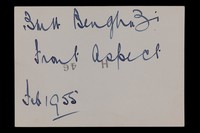 Britt Benghazi
Front Aspect
Feb 1955